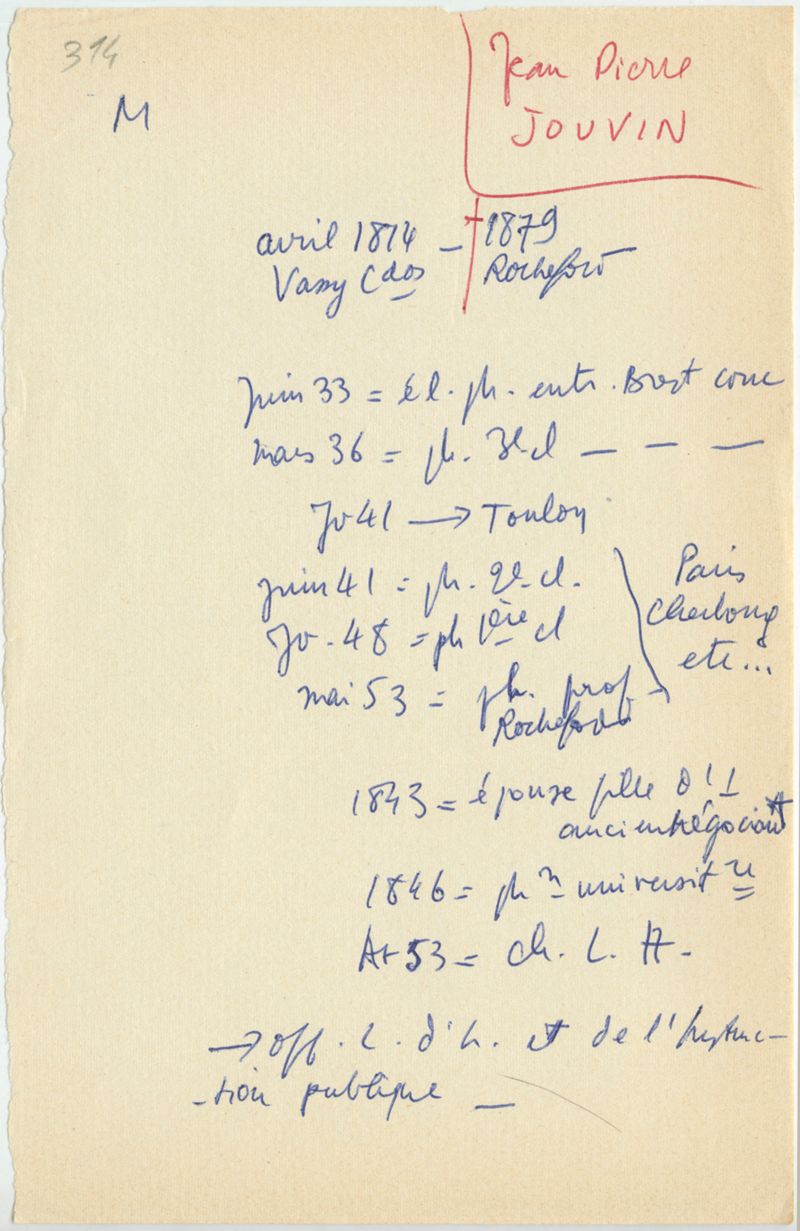 314
M
Jean Pierre
JOUVIN
avril 1814 – † 1879
Vassy Cdos Rochefort
juin 33 = él. ph. entr. Brest conc
mars 36 = ph. 3e cl — — —
Jv 41 → Toulon
juin 41 = ph. 2e cl.
Jv. 48 = ph 1ère cl
mai 53 = ph. prof
Rochefort
Paris
Cherbourg
etc...
1843 = épouse fille d'1
ancien négociant
1846 = ph n universit re
At 53 = ch. L. H.
→ off. L. d'h. et de l'Instruc-
-tion publique —